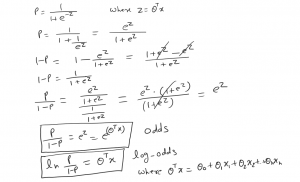 P = 1 / (1 + e^-z)   where z = θᵀx
P = 1 / (1 + 1/e^z) = e^z / (1 + e^z)
1-P = 1 - e^z / (1 + e^z) = (1 + e^z - e^z) / (1 + e^z)
1-P = 1 / (1 + e^z)
P / (1-P) = (e^z / (1 + e^z)) / (1 / (1 + e^z)) = e^z · (1 + e^z) / (1 + e^z) = e^z
P / (1-P) = e^z = e^(θᵀx)   odds
ln P / (1-P) = θᵀx   log-odds
where θᵀx = θ₀ + θ₁x₁ + θ₂x₂ + ..θₙxₙ